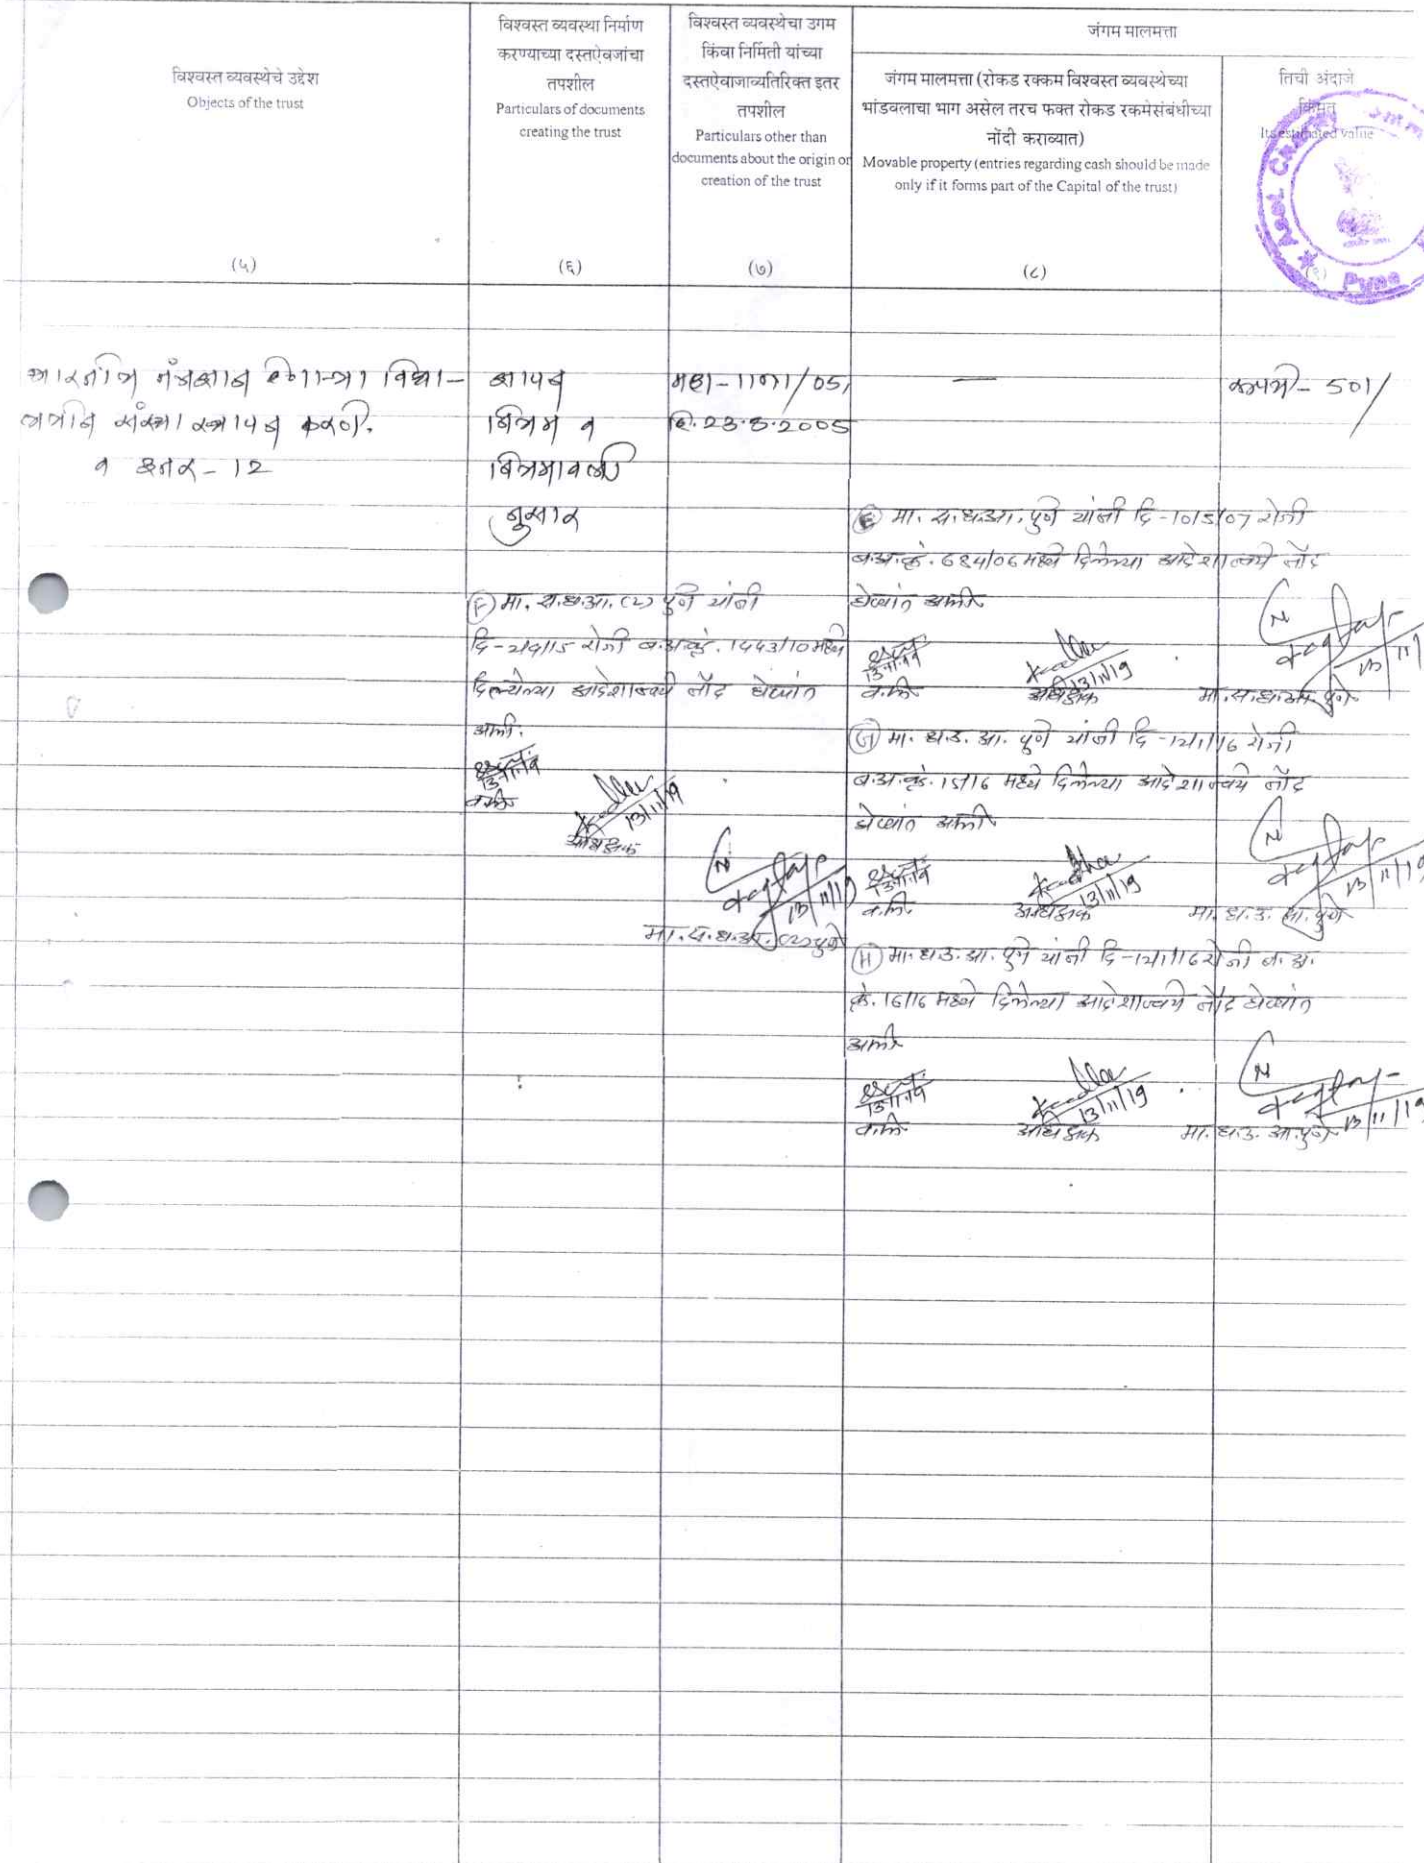 विश्वस्त व्यवस्थेचे उद्देश
Objects of the trust
(५)
विश्वस्त व्यवस्था निर्माण
करण्याच्या दस्तऐवजांचा
तपशील
Particulars of documents
creating the trust
(६)
विश्वस्त व्यवस्थेचा उगम
किंवा निर्मिती यांच्या
दस्तऐवाजाव्यतिरिक्त इतर
तपशील
Particulars other than
documents about the origin or
creation of the trust
(७)
जंगम मालमत्ता
जंगम मालमत्ता (रोकड रक्कम विश्वस्त व्यवस्थेच्या
भांडवलाचा भाग असेल तरच फक्त रोकड रकमेसंबंधीच्या
नोंदी कराव्यात)
Movable property (entries regarding cash should be made
only if it forms part of the Capital of the trust)
(८)
तिची अंदाजे
किंमत
Its estimated value
(९)
Pune
संस्था स्थापन करणे.
व इतर - 12
ज्ञापन
नियम व
नियमावली
नुसार
महा-1101/05,
दि. 23.5.2005
—
रुपये - 501/
(E) मा. स.ध.आ. पुणे यांनी दि-10/5/07 रोजी
ब.अ.क्रं. 684/06 मध्ये दिलेल्या आदेशान्वये नोंद
घेण्यांत आली
13.11.19
व.लि.
13/11/19
अधिक्षक
मा. स.ध.आ. पुणे
(F) मा. स.ध.आ. (२) पुणे यांनी
रोजी ब.अ.क्रं. १५५३/10 मध्ये
दिलेल्या आदेशान्वये नोंद घेण्यांत
आली.
13.11.19
व.लि.
13/11/19
अधिक्षक
13/11/19
मा. स.ध.आ. (२) पुणे
(G) मा. ध.उ.आ. पुणे यांनी दि-१२/1/16 रोजी
ब.अ.क्रं. 15/16 मध्ये दिलेल्या आदेशान्वये नोंद
घेण्यांत आली
13.11.19
व.लि.
13/11/19
अधिक्षक
13/11/19
मा. ध.उ. आ. पुणे
(H) मा. ध.उ.आ. पुणे यांनी दि-१२/1/16 रोजी ब.अ.
क्रं. 16/16 मध्ये दिलेल्या आदेशान्वये नोंद घेण्यांत
आली
13.11.19
व.लि.
13/11/19
अधिक्षक
13/11/19
मा. ध.उ. आ. पुणे